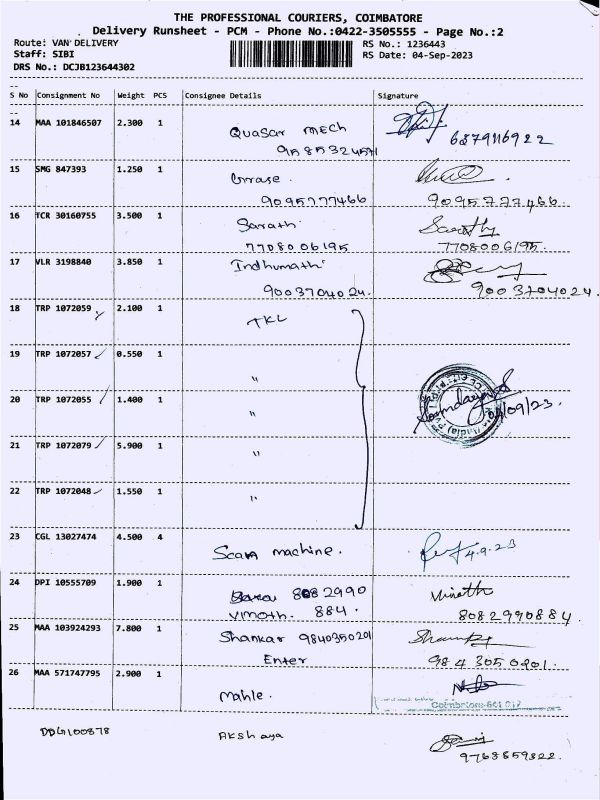 THE PROFESSIONAL COURIERS, COIMBATORE
Delivery Runsheet - PCM - Phone No.:0422-3505555 - Page No.:2
Route: VAN DELIVERY RS No.: 1236443
Staff: SIBI RS Date: 04-Sep-2023
DRS No.: DCJB123644302
S No Consignment No Weight PCS Consignee Details Signature
14 MAA 101846507 2.300 1 Quasar mech
9585324571 6879116922
15 SMG 847393 1.250 1
9095777466 9095777466
16 TCR 30160755 3.500 1 Sarath Sarathy
7708006195 7708006195.
17 VLR 3198840 3.850 1 Indhumathi
9003704024. 9003704024.
18 TRP 1072059 2.100 1 TKL
19 TRP 1072057 0.550 1 "
20 TRP 1072055 1.400 1 " 04/09/23.
21 TRP 1072079 5.900 1 "
22 TRP 1072048 1.550 1 "
23 CGL 13027474 4.500 4 Scan machine. 4.9.23
24 DPI 10555709 1.900 1 8082990
Vimoth. 884. 8082990884.
25 MAA 103924293 7.800 1 Shankar 9840350201
Enter
26 MAA 571747795 2.900 1 Mahle.
Coimbatore-641 017
DDG100878 Akshaya
9768859322.